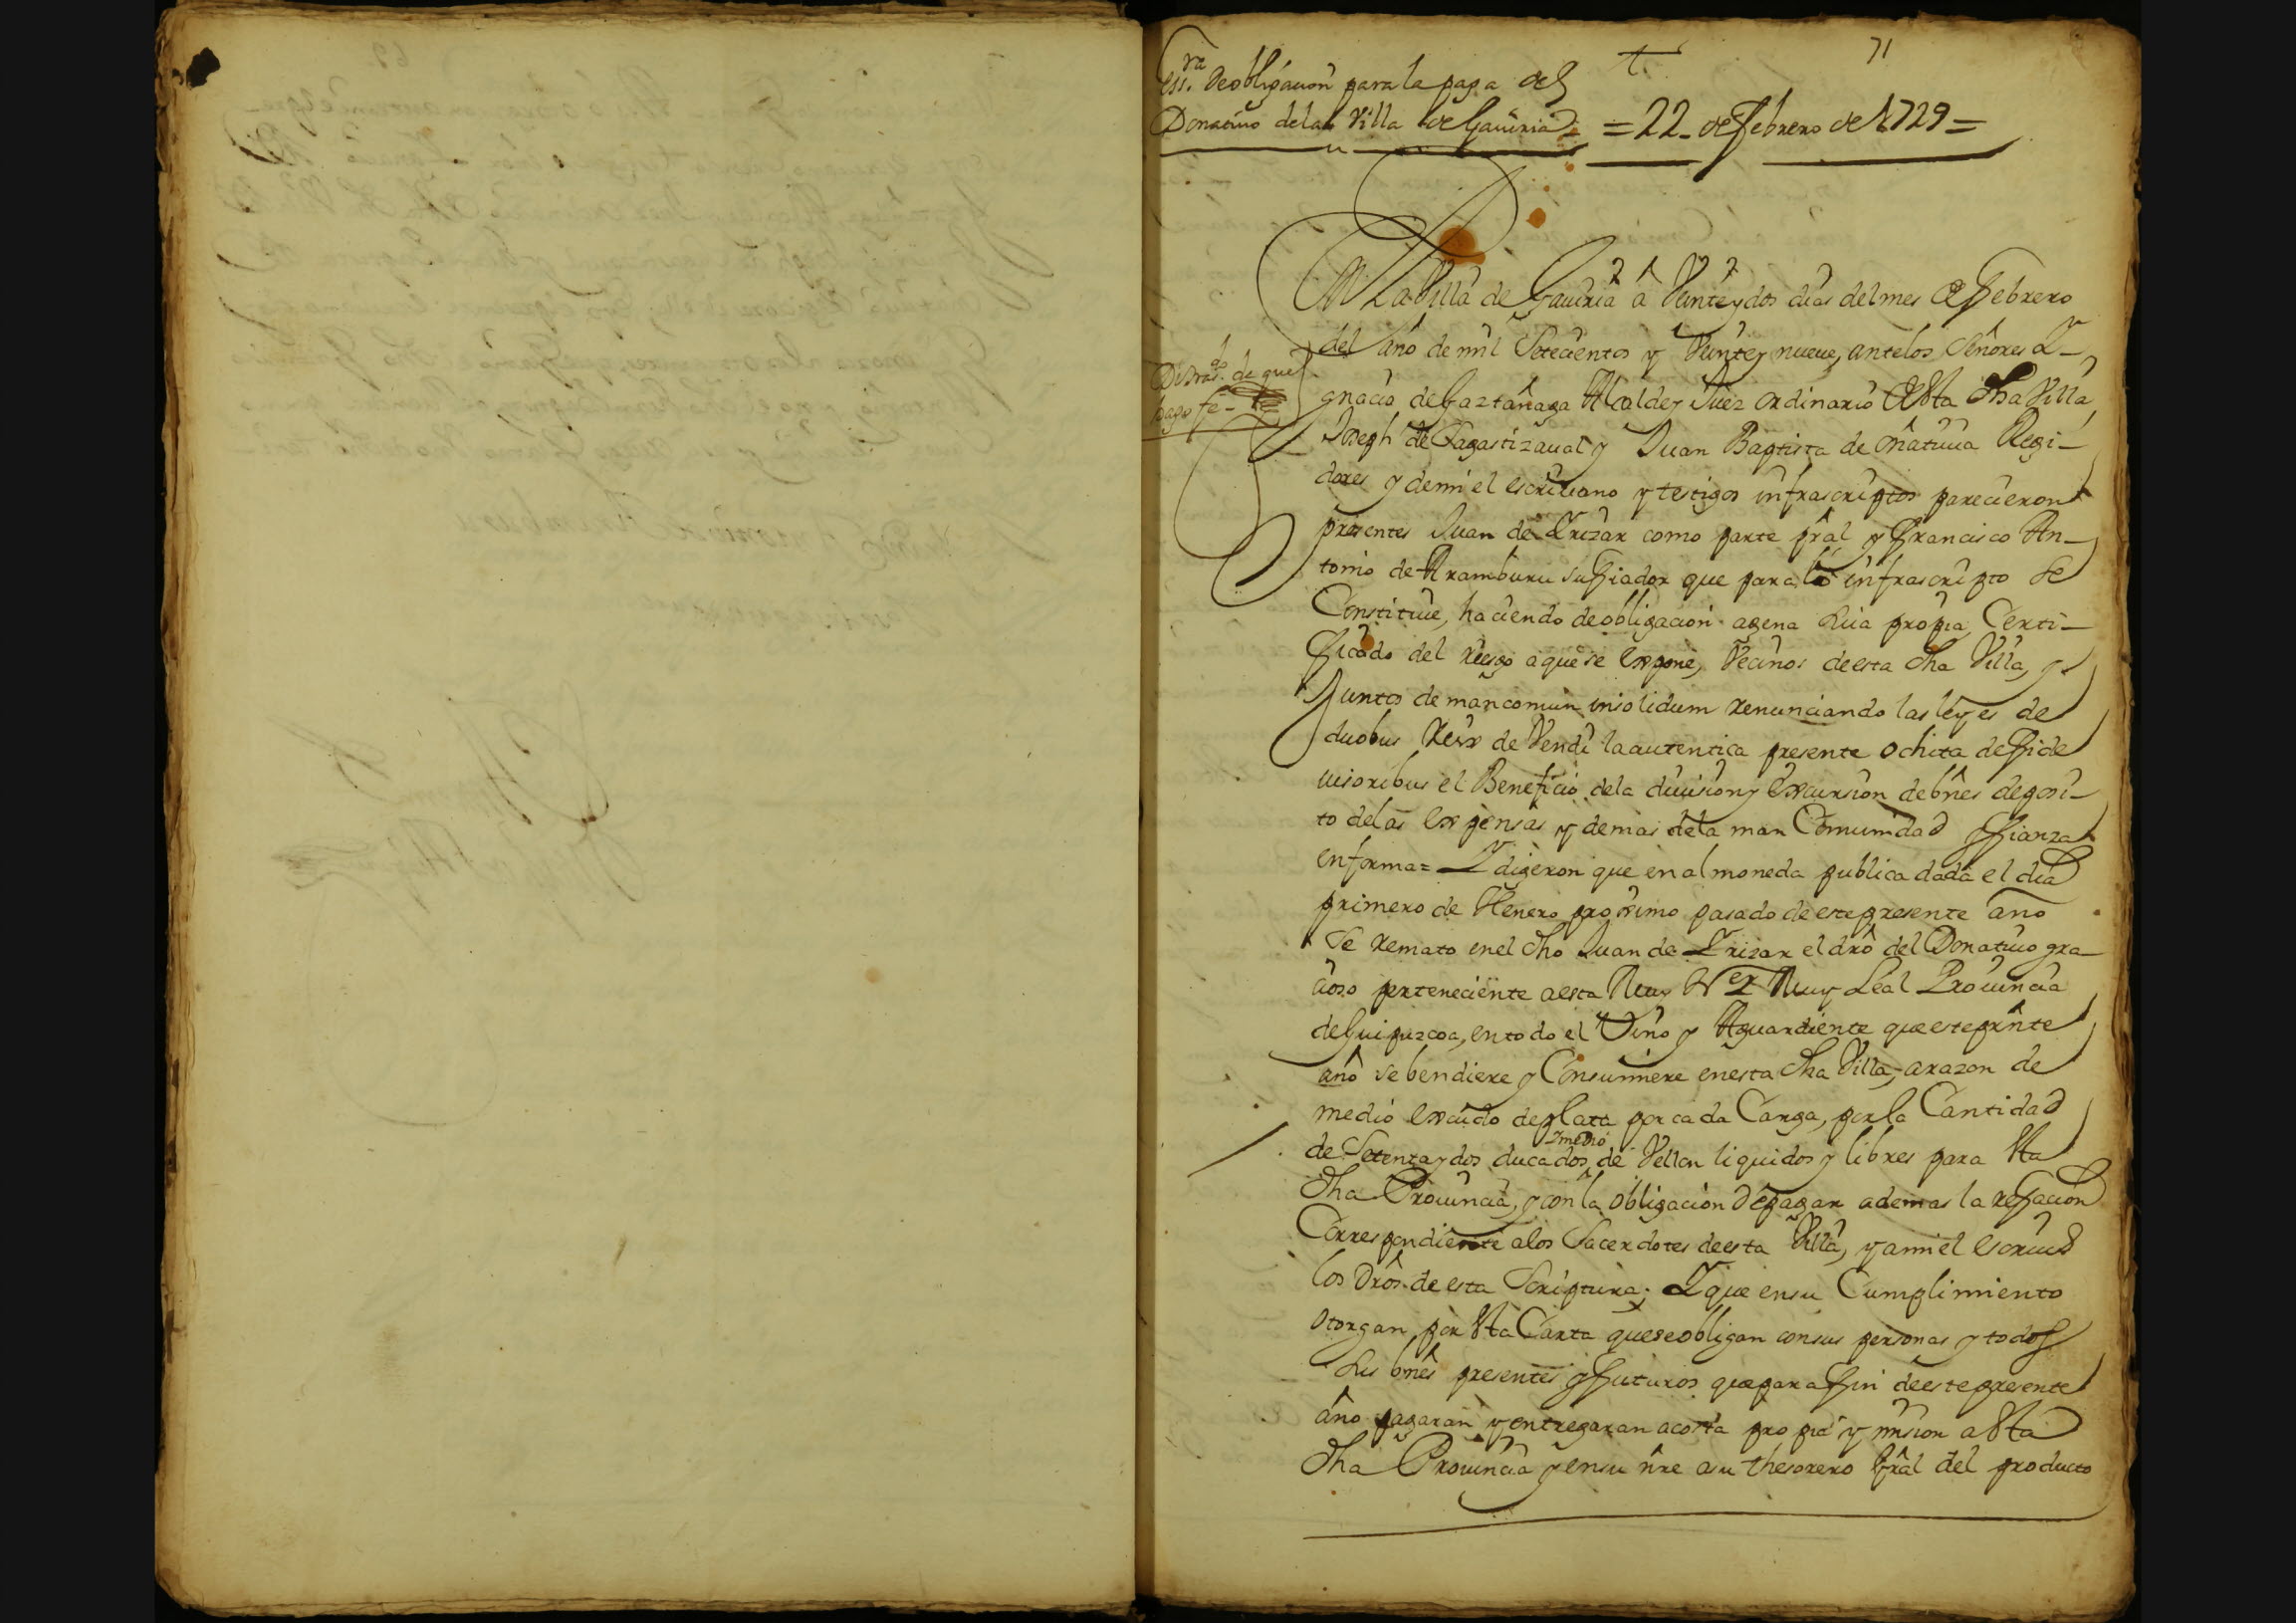 71
Essra. de obligacion para la paga del
Donatiuo dela Villa de Gauiria = 22 - de febrero de 1729 =
En La Villa de Gauiria â Veinte y dos dias del mes de febrero
del año de mil Setecientos y Veinte y nueue, ante los Señores Y-
gnacio de Gaztañaga Alcalde y Juez ordinario desta dha Villa,
Joseph de Sagastizaual y Juan Baptista de oñatiuia Regi-
dores y de mi el escriuano y testigos infrascriptos parecieron
presentes Juan de Yrizar como parte prâl y francisco An-
tonio de Aramburu su fiador que para lo infrascripto se
Constituie, haciendo de obligacion agena suia propia Certi-
ficado del riesgo aque se expone, Vecinos de esta dha Villa, y
Juntos de mancomun insolidum renunciando las leyes de
duobus Rex de Vendi la autentica presente ochita de fide
iusoribus el Beneficio dela diuision y excursion de bnês deposi-
to delas expensas y demas dela man Comunidad y fianza
en forma = Y digeron que en almoneda publica dada el dia
primero de Henero proximo pasado de este presente año
Se remato enel dho Juan de Yrizar el drô del Donatiuo gra-
cioso perteneciente aesta Muy Ne. Y Muy Leal Prouincia
de Guipuzcoa, en todo el Vino y Aguardiente que este prnte
año se bendiere y Consumiere enesta dha Villa, arazon de
medio escudo de plata por cada Carga, por la Cantidad
de Setenta y dos ducados y medio de Vellon liquidos y libres para Esta
dha Prouincia, y con la obligacion de pagar ademas la refacion
Correspondiente alos Sacerdotes de esta Villa, y ami el escriuo
los drôs de esta Scriptura; Y que ensu Cumplimiento
otorgan por Esta Carta que se obligan consus personas y todos
sus bnês presentes y futuros que para fin de este presente
año pagaran y entregaran acosta propia y mision aEsta
dha Prouincia y ensu nre asu thesorero Gral del producto
de que
hago fe -